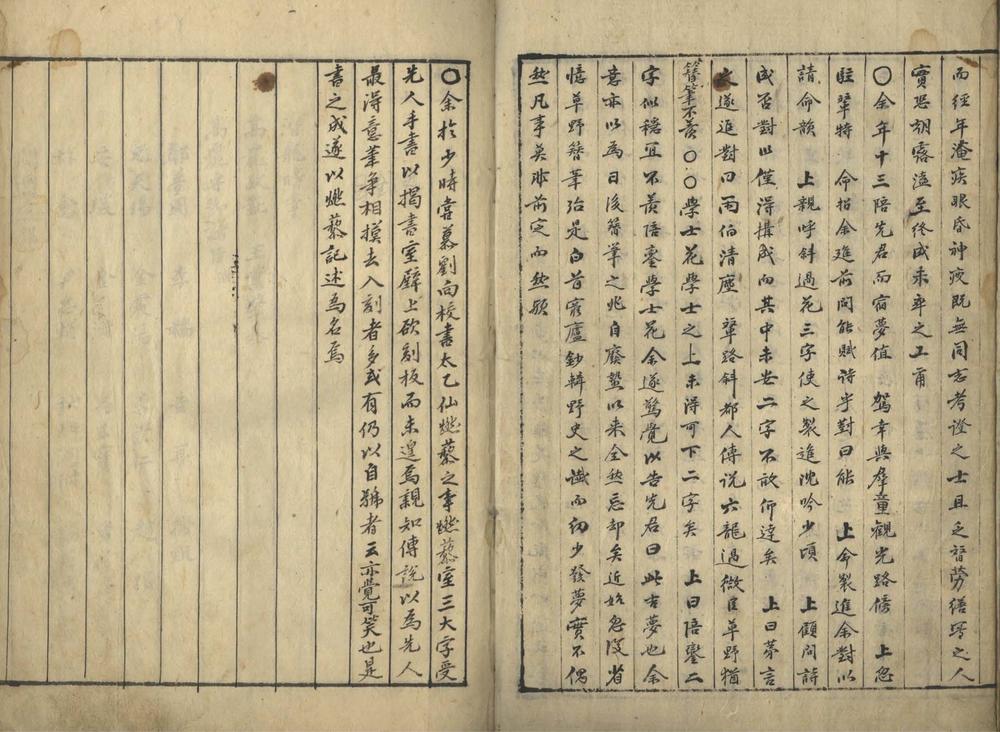 而經年淹疾眼昏神疲既無同志考證之士且乏替勞繕寫之人
實恐朝露溘至終成未卒之工甫
○余年十三陪先君而宿夢值 駕幸與羣童觀光路傍 上忽
駐輦特 命招余進前問能賦詩乎對曰能 上命製進余對以
請命韻 上親呼斜過花三字使之製進沈吟少頃 上顧問詩
成否對以僅得搆成而其中未安二字不敢仰達矣 上曰第言
之遂進對曰雨伯清塵 輦路斜都人傳說六龍過微臣草野猶
簪筆不羨○○學士花學士之上未得可下二字矣 上曰陪鑾二
字似穩宜不羨陪鑾學士花余遂驚覺以告先君曰此吉夢也余
意亦以為日後簪筆之兆自廢蟄以来全然忘却矣近始忽復省
憶草野簪筆殆是白首窮廬鈔輯野史之讖而幼少發夢實不偶
然凡事莫非前定而然歟
○余於少時嘗慕劉向校書太乙仙燃藜之事燃藜室三大字受
先人手書以揭書室壁上欲刻板而未遑焉親知傳說以為先人
最得意筆爭相摸去入刻者多或有仍以自號者云亦覺可笑也是
書之成遂以燃藜記述為名焉